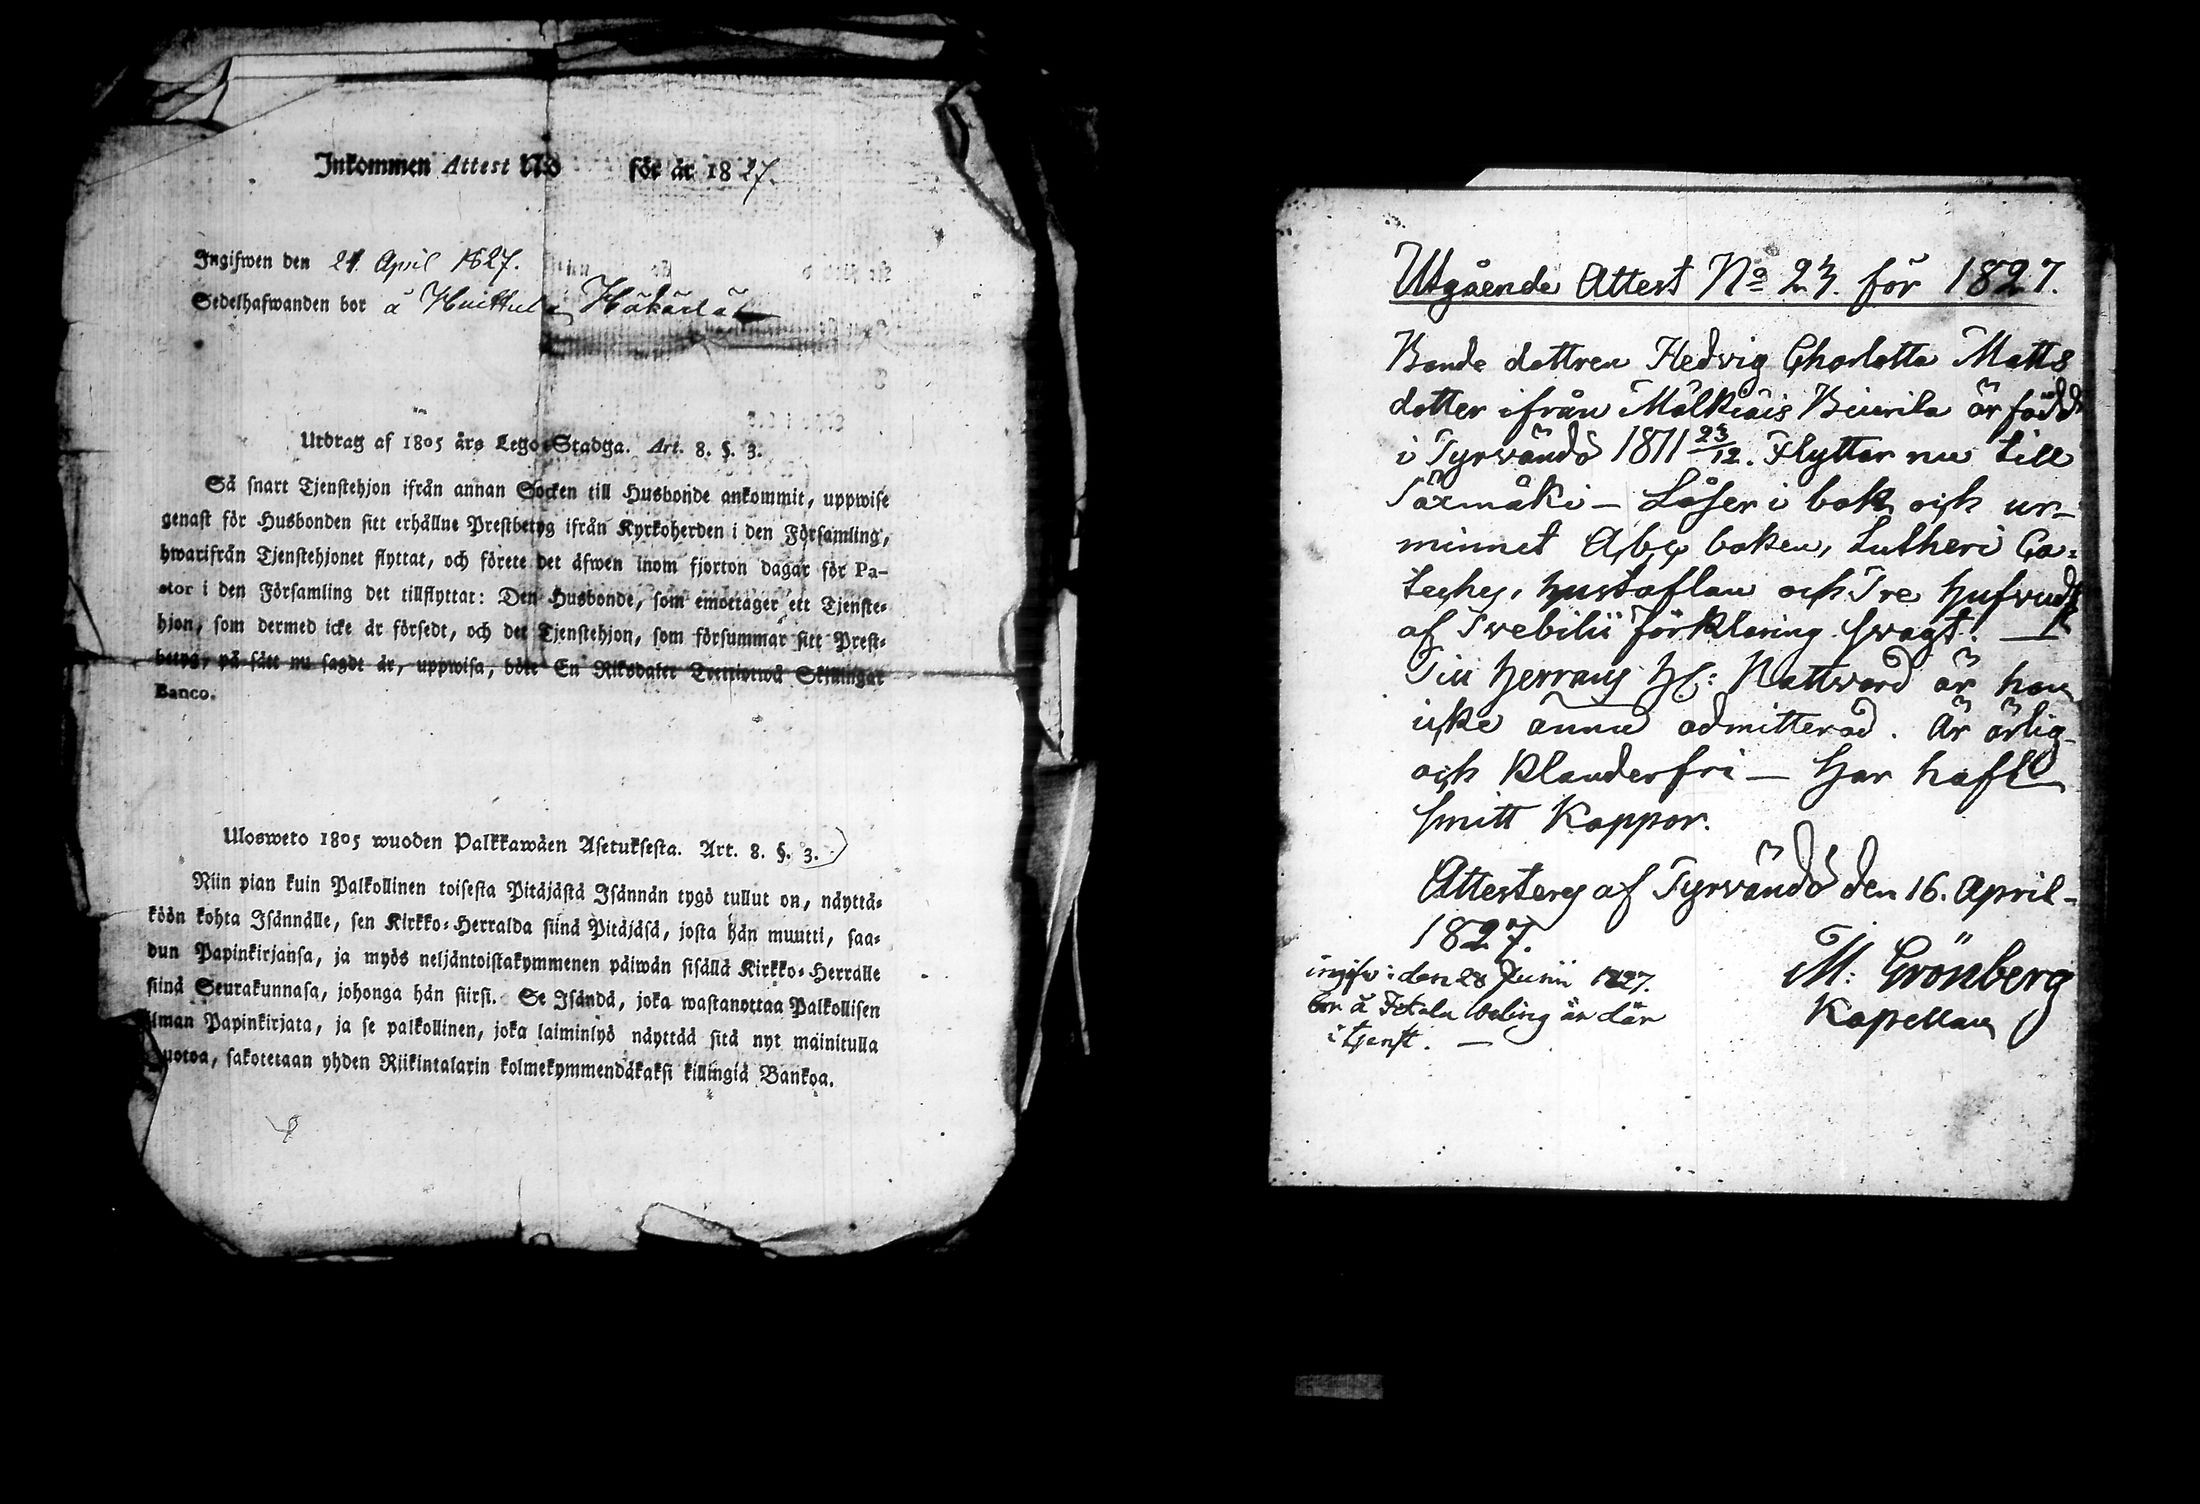 Inkommen Attest No för år 1827.
Ingifwen den 24 April 1827.
Sedelhafwanden bor å Huittula Häkärlä
Utdrag af 1805 års Lego-Stadga. Art. 8. §. 3.
Så snart Tjenstehjon ifrån annan Socken till Husbonde ankommit, uppwise
genast för Husbonden sitt erhållne Prestbetyg ifrån Kyrkoherden i den Församling,
hwarifrån Tjenstehjonet flyttat, och förete det äfwen inom fjorton dagar för Pa-
stor i den Församling det tillflyttat: Den Husbonde, som emottager ett Tjenste-
hjon, som dermed icke är försedt, och det Tjenstehjon, som försummar sitt Prest-
betyg, på sätt nu sagdt är, uppwisa, böte En Riksdaler Trettiotwå Skillingar
Banco.
Ulosweto 1805 wuoden Palkkawäen Asetuksesta. Art. 8. §. 3.
Niin pian kuin Palkollinen toisesta Pitäjästä Isännän tygö tullut on, näyttä-
köön kohta Isännälle, sen Kirkko-Herralda siinä Pitäjäsä, josta hän muutti, saa-
dun Papinkirjansa, ja myös neljäntoistakymmenen päiwän sisällä Kirkko-Herralle
siinä Seurakunnasa, johonga hän siirsi. Se Isändä, joka wastanottaa Palkollisen
ilman Papinkirjata, ja se palkollinen, joka laiminlyö näyttää sitä nyt mainitulla
muotoa, sakotetaan yhden Riikintalarin kolmekymmendäkaksi killingiä Bankoa.
Utgående Attest No 23. för 1827.
Bonde dottren Hedvig Charlotta Matts
dotter ifrån Mälkiäis Beurila är född
i Tyrvändö 1811 23/12. Flyttar nu till
Tärmäki – Läser i bok och ur
minnet Abc boken, Lutheri Ca=
teches, hustaflan och Tre hufvuds
af Svebilii förklaring svagt. —
Till Herrans Hl: Nattvard är hon
icke ännu admitterad. Är ärlig
och klanderfri — Har haft
smitt Koppor.
Attesteras af Tyrvändö den 16. April
1827.
M: Grönberg
Kapellan
ingifv: den 28 Junii 1827.
bor å är där
i tjenst. —